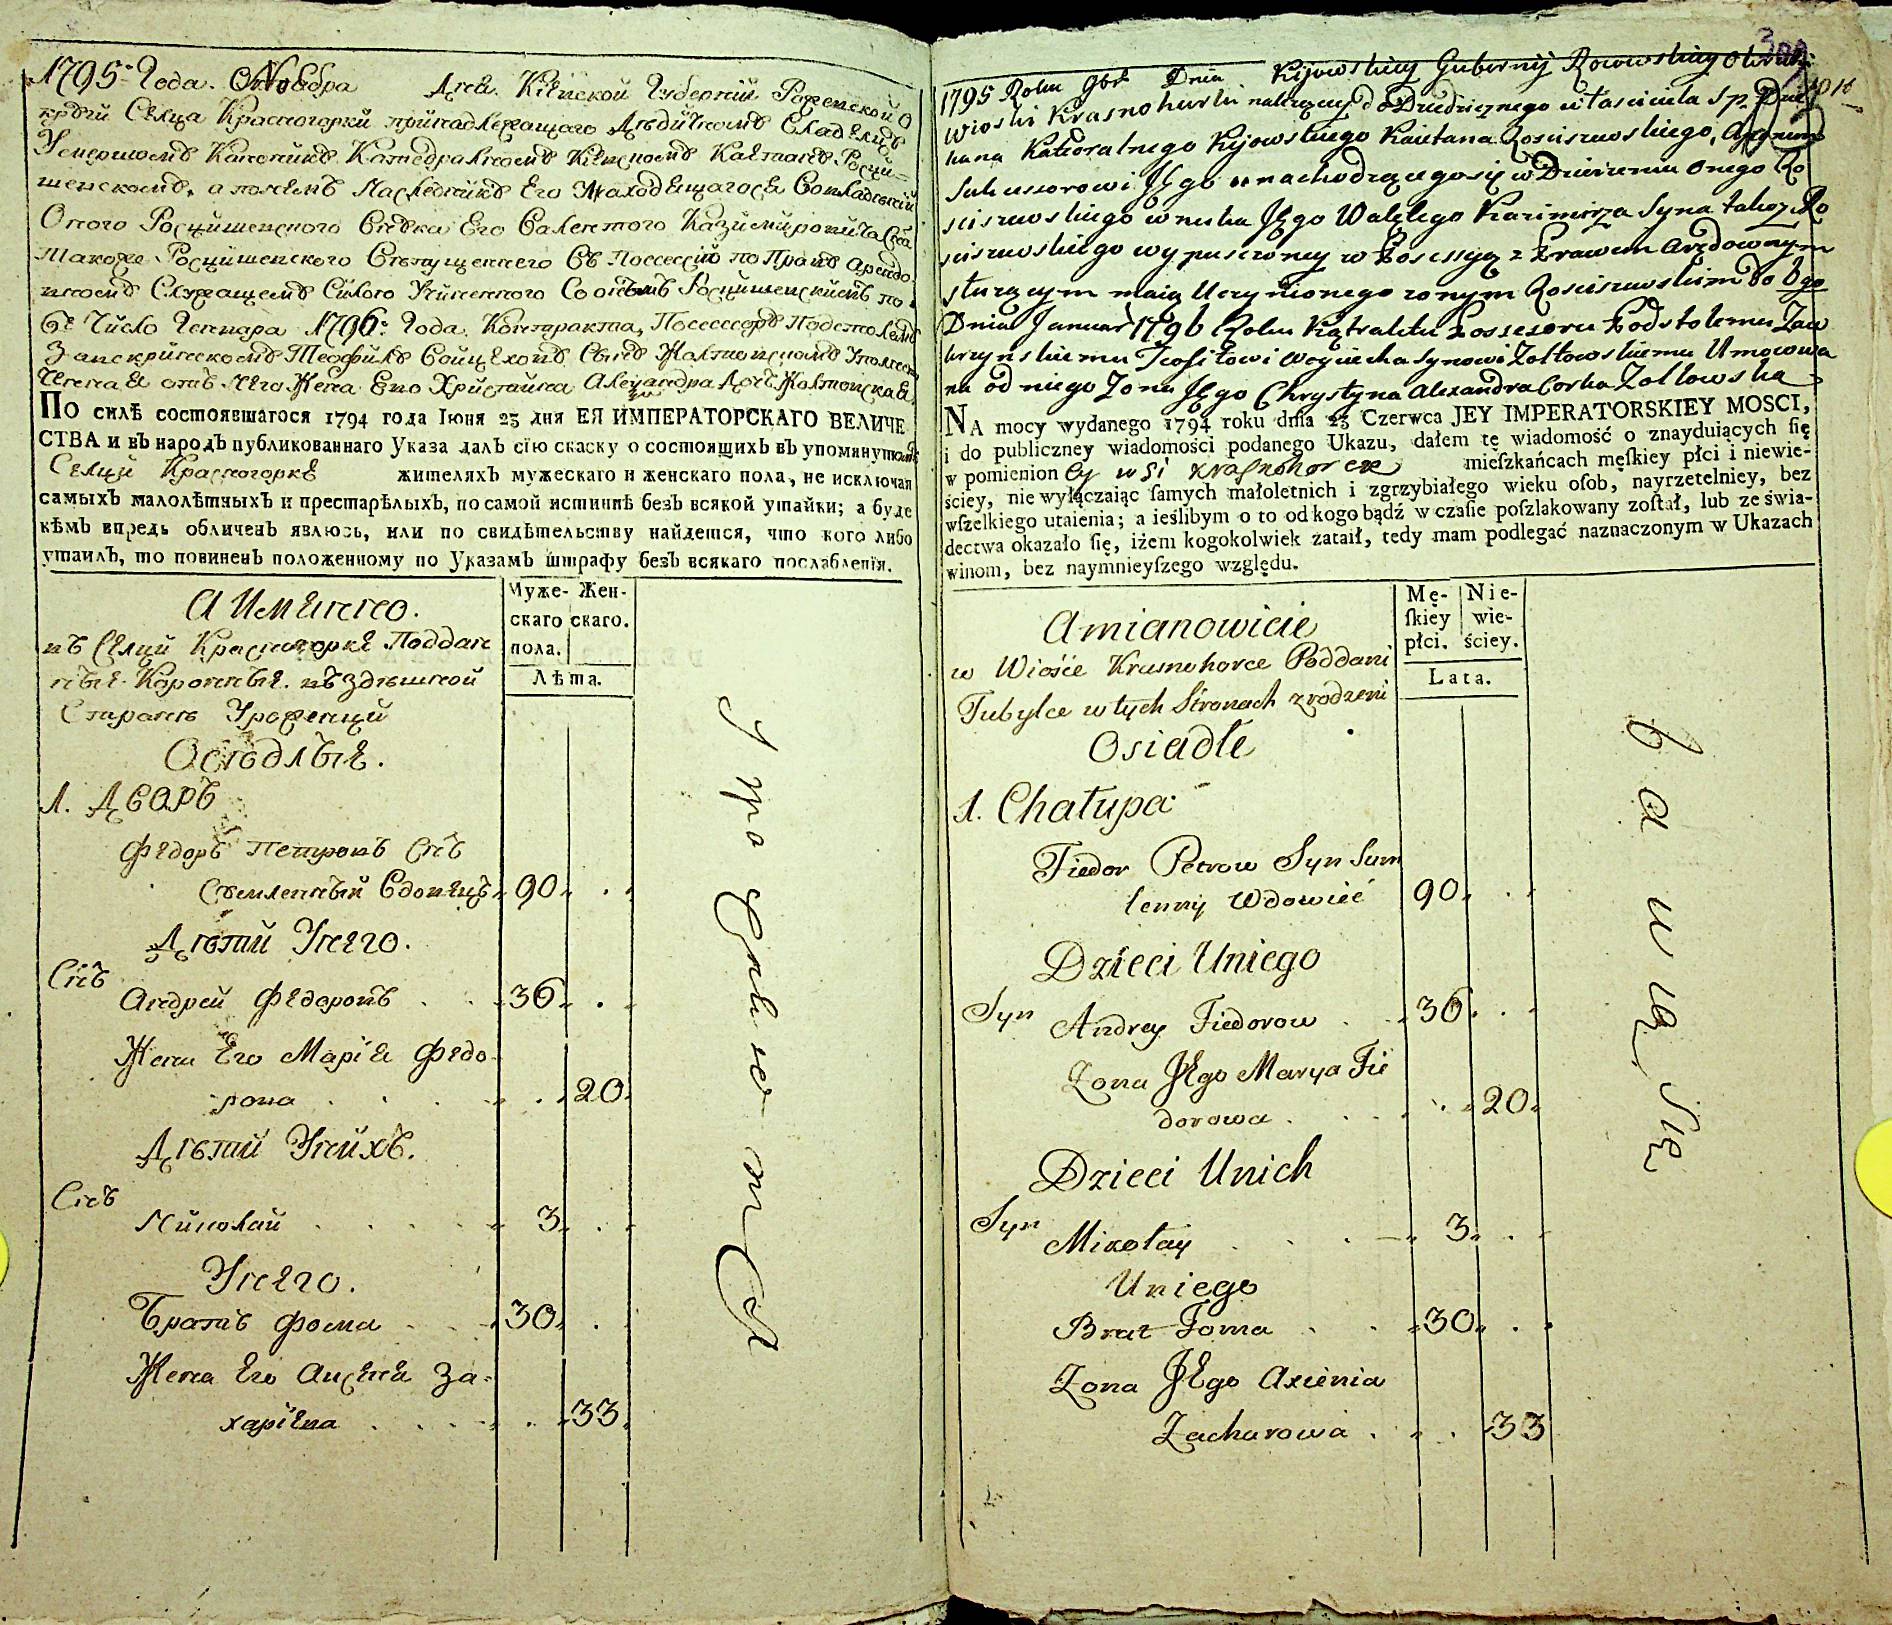 1795 Года. Ноебра Дня. Кіевской Губерніи Радомской О
круги Селца Красногорки принадлежащаго Дѣдичномъ Владелцѣ
Умершомъ Каноникѣ Катедралномъ Кіевскомъ Каетанѣ Росци-
шевскомъ, а потемъ Наследникѣ Его Находящагося Вовладѣніи
Оного Росцишевского Внѣка Его Валентого Казимировича Сна
Такоже Росцишевского Выпущенного Въ Поссессію по Правѣ Арендо
вномъ Служащемъ Силою Учиненного Со онымъ Росцишевскимъ по
6е Число Генвара 1796: Года. Контракта, Поссессорѣ Подстолемъ
Закскринскомъ Теофилѣ Войцеховѣ Сынѣ Жолтовскомъ Уполно
ченная отъ Него Жена Его Христина Александра Дочь Жолтовская
ПО силѣ состоявшагося 1794 года Іюня 23 дня ЕЯ ИМПЕРАТОРСКАГО ВЕЛИЧЕ
СТВА и въ народъ публикованнаго Указа далъ сію скаску о состоящихъ въ упомянутомъ
Селци Красногоркѣ жителяхъ мужескаго и женскаго пола, не исключая
самыхъ малолѣтныхъ и престарѣлыхъ, по самой истиннѣ безъ всякой утайки; а буде
кѣмъ впредь обличенъ явлюсь, или по свидѣтельству найдется, что кого либо
утаилъ, то повиненъ положенному по Указамъ штрафу безъ всякаго послабленія.
А Именно.
въ Селци Красногоркѣ Поддан
ные Коронные въ здѣшной
Странѣ Уроженци
Осѣдлые.
Муже- Жен-
скаго скаго.
пола.
Лѣта.
1. Дворъ
Федоръ Петровъ Снъ
Съемленный Вдовецъ 90
Дѣти Унего.
Снъ
Андрей Федоровъ 36
Жена Его Марія Федо-
рова 20
Дѣти Унихъ.
Снъ
Николай 3
Унего.
Братъ Фома 30
Жена Его Аксеня За-
харіева 33
1795 Roku 9bra Dnia Kijowskiey Gubernij Okru
Wioski Krasnohurki należącey do Dziedzicznego własciciela Sp.
kana Katedralnego Kijowskiego Kaietana Rosciszewskiego,
Sukcessorowi JEgo nachodzącego się w Dzierzeniu onego Ro
sciszewskiego wnuka JEgo Walętego Kazimirza Syna takoz Ro
sciszewskiego wypuszczoney w Possessyą z Prawem Arędownym
słuzącym maią Uczynionego z onym Rosciszewskim do 6go
Dnia Januar 1796 Roku Kątraktu Possesoru Podstolemu Zaw
krzynskiemu Teofiłowi Woyciecha Synowi Zołtowskiemu Umocowa
na od niego Zona JEgo Chrystyna Alexandra Corka Zołtowska
NA mocy wydanego 1794 roku dnia 23 Czerwca JEY IMPERATORSKIEY MOSCI,
i do publiczney wiadomości podanego Ukazu, dałem tę wiadomość o znayduiących ſię
w pomienion ey wsi Krasnohorce mieſzkańcach męſkiey płci i niewie-
ściey, nie wyłączaiąc ſamych małoletnich i zgrzybiałego wieku oſob, nayrzetelniey, bez
wſzelkiego utaienia; a ieślibym o to od kogo bądź w czaſie poſzlakowany zoſtał, lub ze świa-
dectwa okazało ſię, iżem kogokolwiek zataił, tedy mam podlegać naznaczonym w Ukazach
winom, bez naymnieyſzego względu.
Amianowicie
w Wiosce Krasnohorce Poddani
Tubylce w tych Stronach zrodzeni
Osiadłe
Mę- Nie-
ſkiey wie-
płci. ściey.
Lata.
1. Chałupa
Fiedor Petrow Syn Sum
lenny Wdowiec 90
Dzieci Uniego
Syn
Andrey Fiedorow 36
Zona JEgo Marya Fie
dorowa 20
Dzieci Unich
Syn
Mikołay 3
Uniego
Brat Foma 30
Zona JEgo Axienia
Zacharowa 33